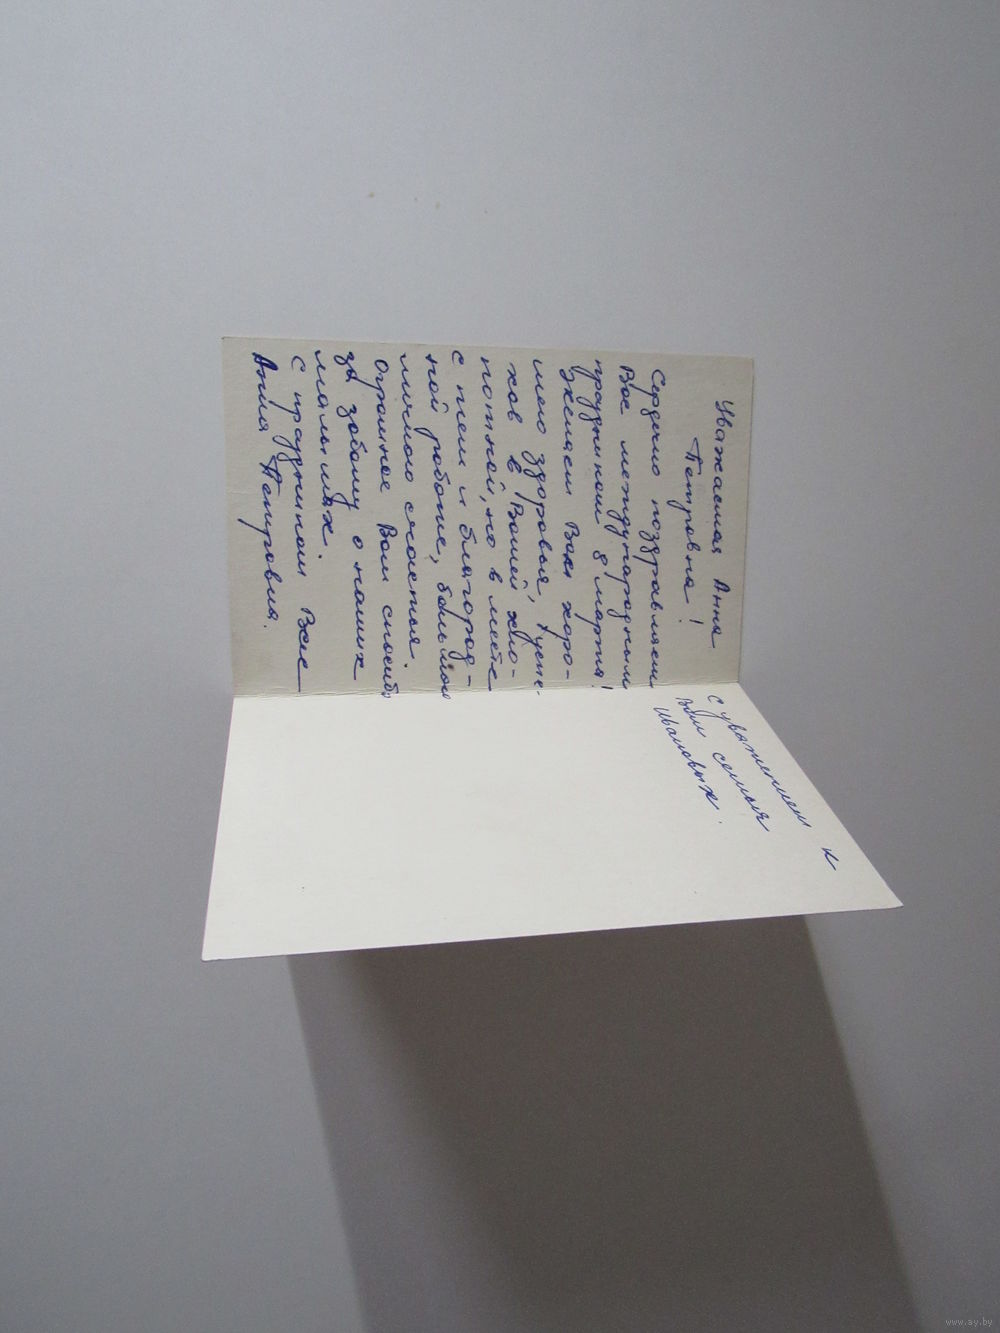 Уважаемая Анна
Петровна!
Сердечно поздравляем
Вас международным
праздником 8 марта!
Желаем Вам хоро-
шего здоровья, успе-
хов в Вашей хло-
потной, но в месте
с тем и благород-
ной работе, большого
личного счастья.
Огромное Вам спасибо
за заботу о наших
малышах.
с праздником Вас
Анна Петровна.
С уважением к
Вам семья
Ивановых.
www.ay.by